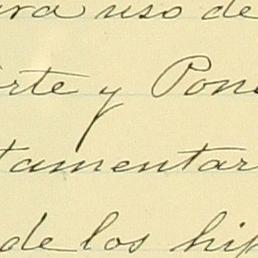 ara uso de
rte y Pon
tamentar
de los hip